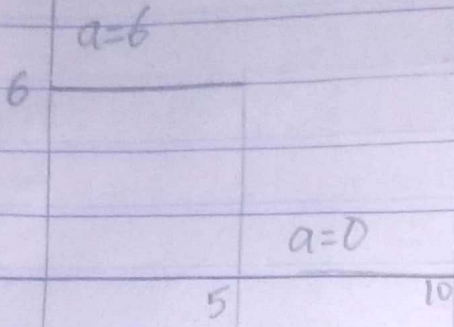 a=6
6
a=0
5 10